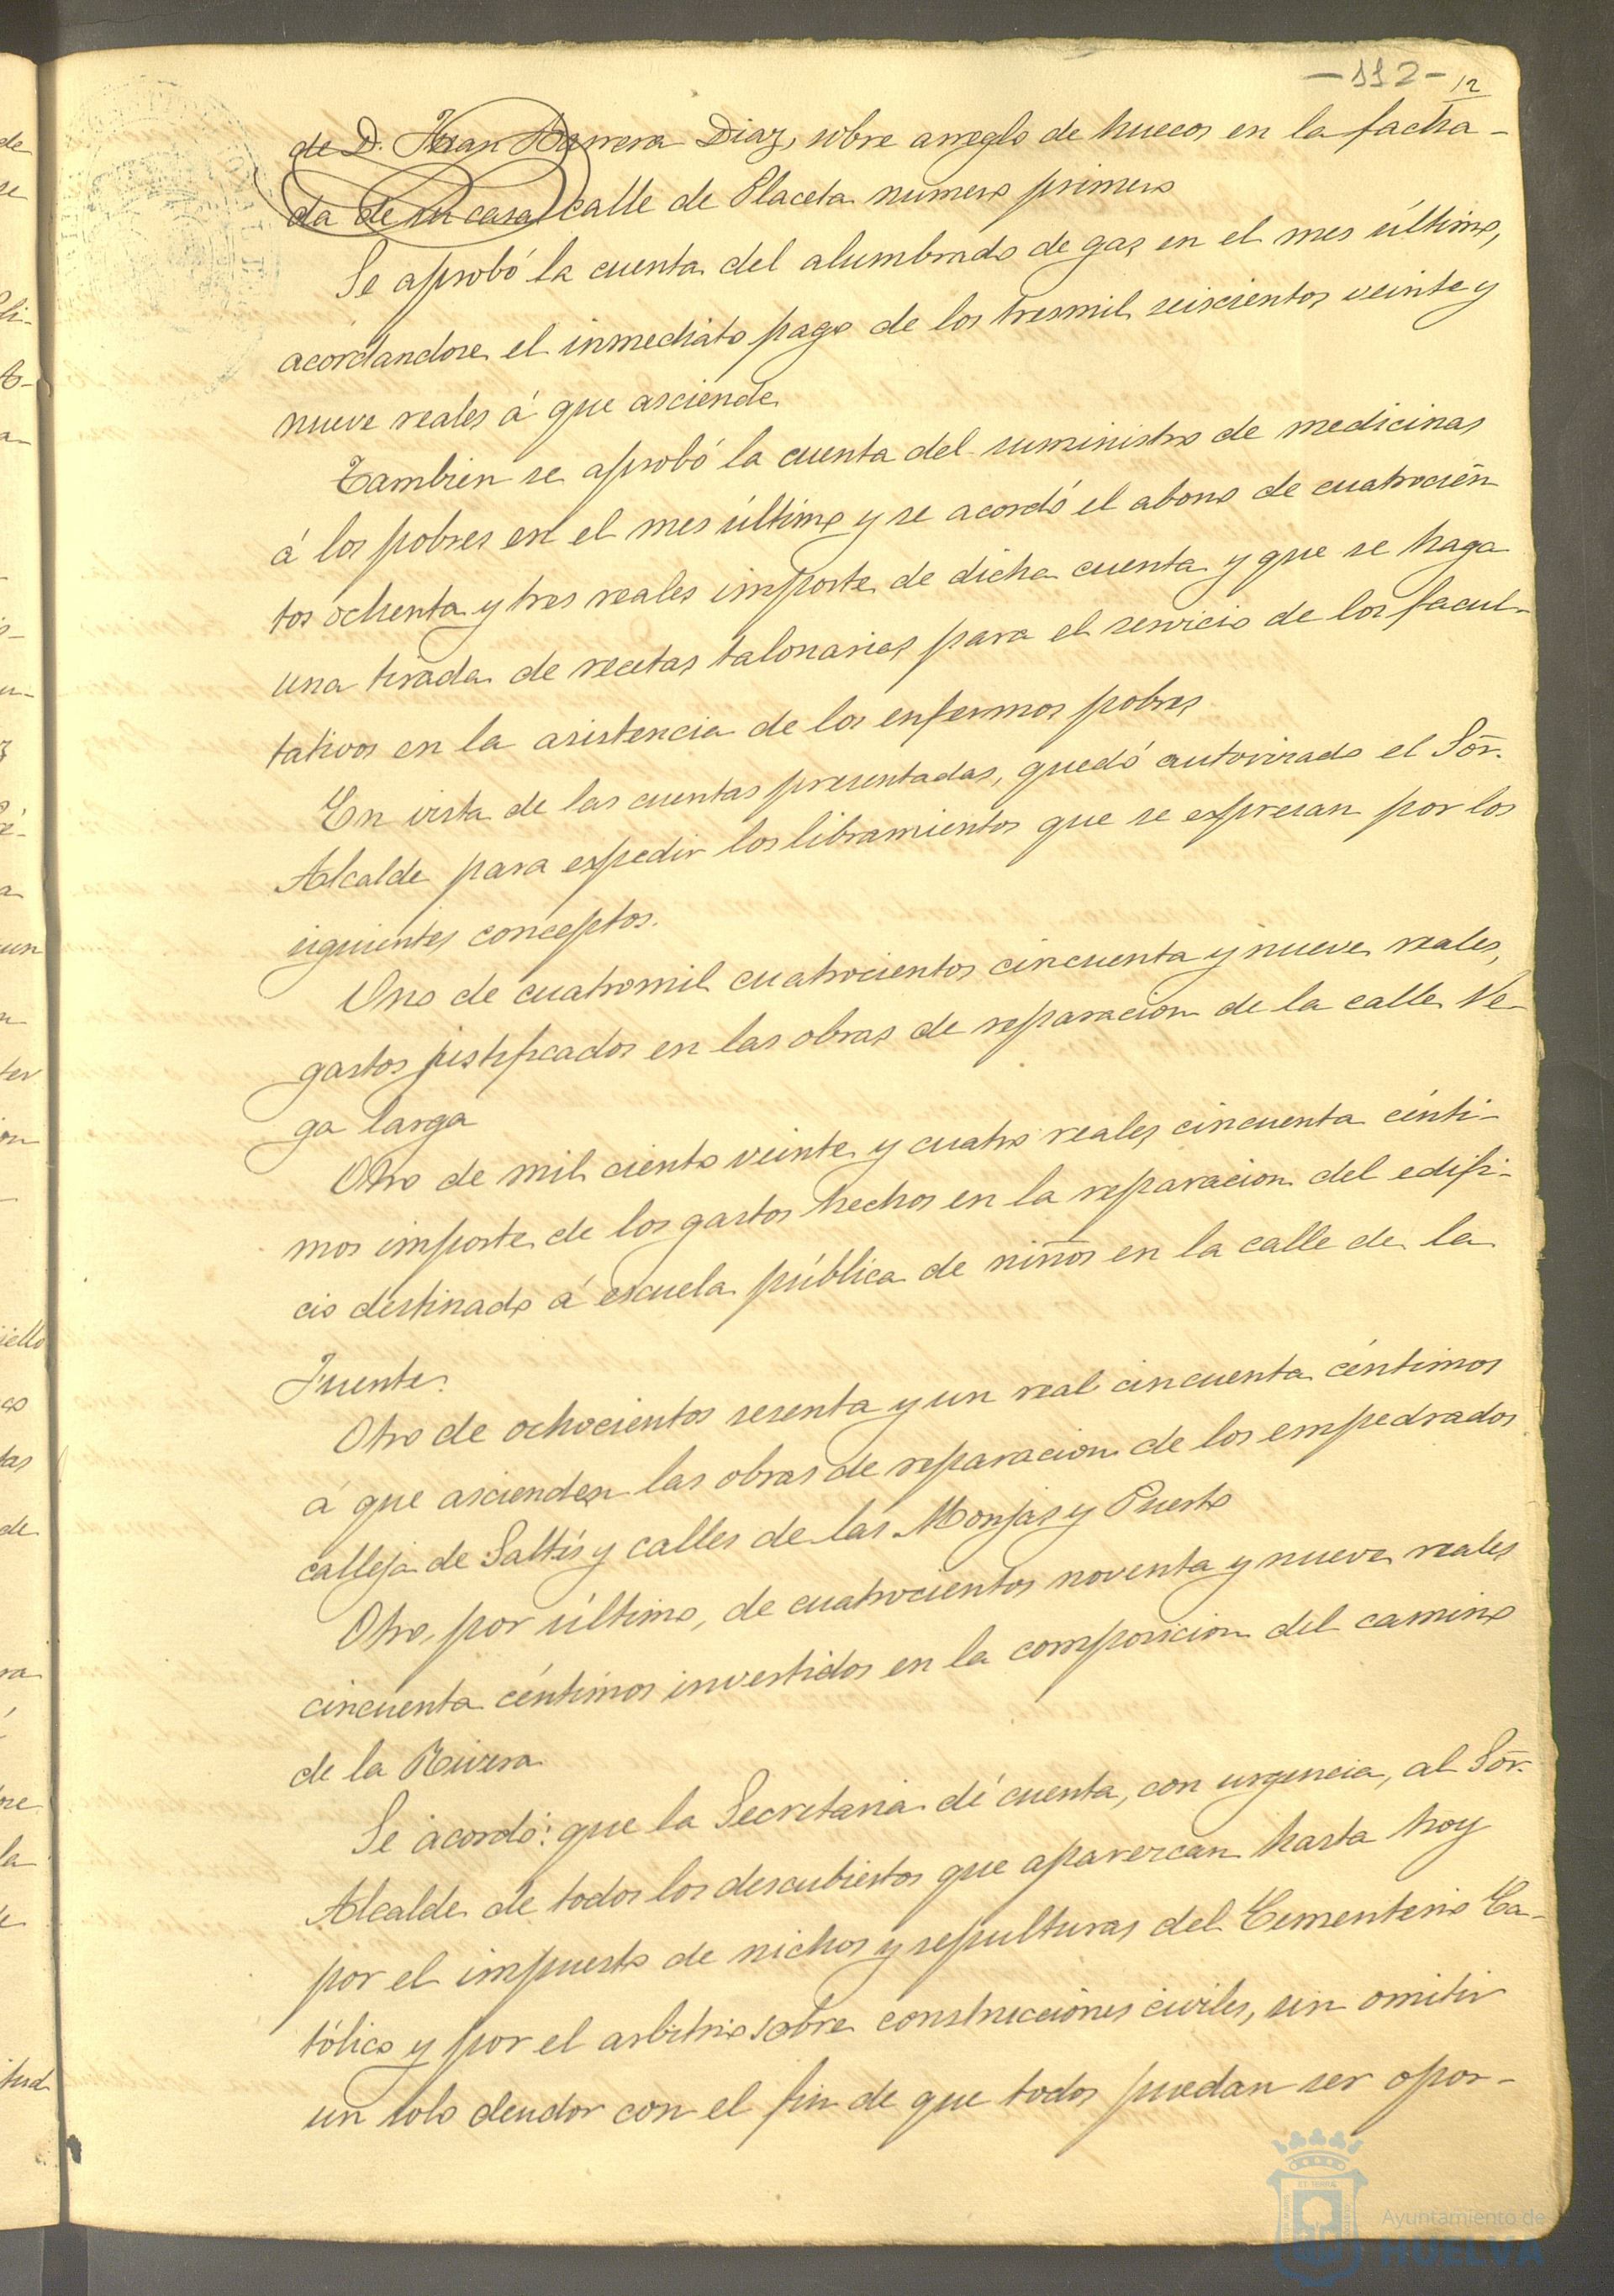 -112-
12
de D. Juan Barrera Diaz, sobre arreglo de huecos en la facha-
da de su casa calle de Placeta numero primero
Se aprobó la cuenta del alumbrado de gas en el mes último,
acordandose el inmediato pago de los tresmil seiscientos veinte y
nueve reales á que asciende
Tambien se aprobó la cuenta del suministro de medicinas
á los pobres en el mes último y se acordó el abono de cuatrocien
tos ochenta y tres reales importe de dicha cuenta y que se haga
una tirada de recetas talonarias para el servicio de los facul-
tativos en la asistencia de los enfermos pobres
En vista de las cuentas presentadas, quedó autorizado el Sor.
Alcalde para expedir los libramientos que se expresan por los
siguientes conceptos.
Uno de cuatromil cuatrocientos cincuenta y nueve reales,
gastos justificados en las obras de reparacion de la calle Ve-
ga larga
Otro de mil ciento veinte y cuatro reales cincuenta cénti-
mos importe de los gastos hechos en la reparacion del edifi-
cio destinado á escuela pública de niños en la calle de la
Fuente.
Otro de ochocientos sesenta y un real cincuenta céntimos
á que ascienden las obras de reparacion de los empedrados
calleja de Saltés y calles de las Monjas y Puerto
Otro, por último, de cuatrocientos noventa y nueve reales
cincuenta céntimos invertidos en la composicion del camino
de la Rivera
Se acordó: que la Secretaria dé cuenta, con urgencia, al Sor.
Alcalde de todos los descubiertos que aparezcan hasta hoy
por el impuesto de nichos y sepulturas del Cementerio Ca-
tólico y por el arbitrio sobre construcciones civiles, sin omitir
un solo deudor con el fin de que todos puedan ser opor-
Ayuntamiento de
HUELVA